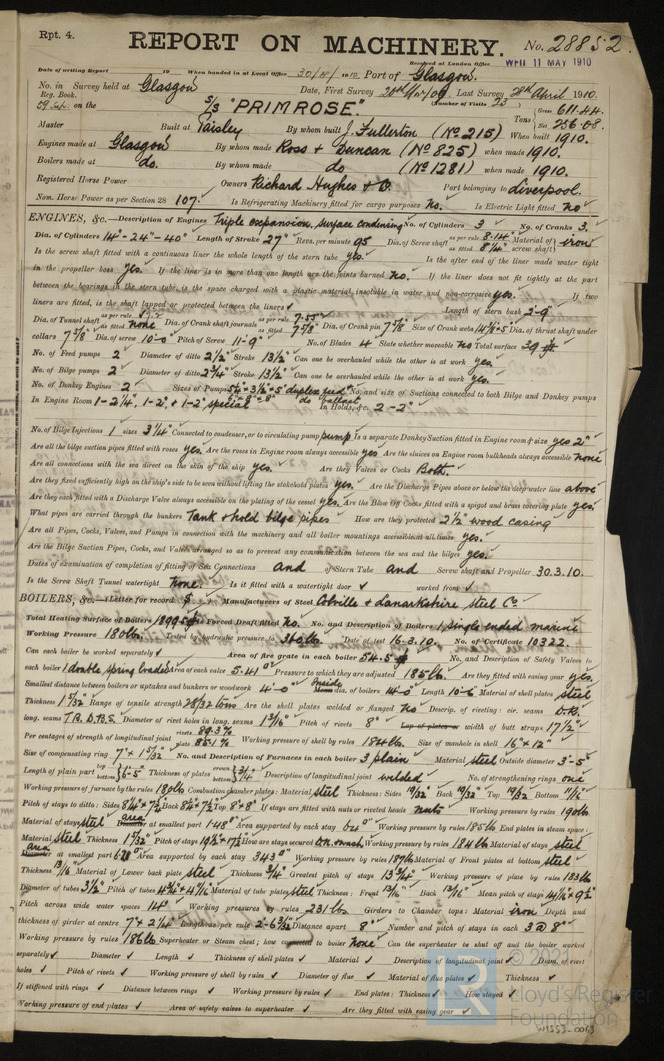 Rpt. 4.
REPORT ON MACHINERY. No. 28852.
Received at London Office WED 11 MAY 1910
Date of writing Report 19 When handed in at Local Office 30/4/1910 Port of Glasgow.
No. in Survey held at Glasgow Date, First Survey Last Survey 28th April 1910.
Reg. Book. (Number of Visits 23)
on the S/S "PRIMROSE." Tons Gross 611.44 Net 256.08.
Master Built at Paisley By whom built J. Fullerton (No 215) When built 1910.
Engines made at Glasgow By whom made Ross & Duncan (No 825) when made 1910.
Boilers made at do. By whom made do (No 1281) when made 1910.
Registered Horse Power Owners Richard Hughes & Co. Port belonging to Liverpool.
Nom. Horse Power as per Section 28 107. Is Refrigerating Machinery fitted for cargo purposes No. Is Electric Light fitted No
ENGINES, &c.—Description of Engines Triple expansion, surface condensing No. of Cylinders 3 No. of Cranks 3.
Dia. of Cylinders 14"-24"-40" Length of Stroke 27" Revs. per minute 95 Dia. of Screw shaft as per rule 8.14" as fitted 8 1/4" Material of screw shaft iron
Is the screw shaft fitted with a continuous liner the whole length of the stern tube yes. Is the after end of the liner made water tight
in the propeller boss yes. If the liner is in more than one length are the joints burned no. If the liner does not fit tightly at the part
between the bearings in the stern tube, is the space charged with a plastic material insoluble in water and non-corrosive yes. If two
liners are fitted, is the shaft lapped or protected between the liners ✓ Length of stern bush 2-9"
Dia. of Tunnel shaft as per rule as fitted none Dia. of Crank shaft journals as per rule 7.55" as fitted 7 5/8" Dia. of Crank pin 7 5/8" Size of Crank webs Dia. of thrust shaft under
collars 7 5/8" Dia. of screw 10-0" Pitch of Screw 11-9" No. of Blades 4 State whether moveable no Total surface 39
No. of Feed pumps 2 Diameter of ditto 2 1/2" Stroke 13 1/2" Can one be overhauled while the other is at work yes.
No. of Bilge pumps 2 Diameter of ditto 2 3/4" Stroke 13 1/2" Can one be overhauled while the other is at work yes.
No. of Donkey Engines 2 Sizes of Pumps duplex feed do ballast No. and size of Suctions connected to both Bilge and Donkey pumps
In Engine Room 1-2 1/4, 1-2" & 1-2" special In Holds, &c. 2-2"
No. of Bilge Injections 1 sizes 3 1/4" Connected to condenser, or to circulating pump pump Is a separate Donkey Suction fitted in Engine room & size yes 2"
Are all the bilge suction pipes fitted with roses yes. Are the roses in Engine room always accessible yes Are the sluices on Engine room bulkheads always accessible none
Are all connections with the sea direct on the skin of the ship yes. Are they Valves or Cocks Both.
Are they fixed sufficiently high on the ship's side to be seen without lifting the stokehold plates yes. Are the Discharge Pipes above or below the deep water line above
Are they each fitted with a Discharge Valve always accessible on the plating of the vessel yes Are the Blow Off Cocks fitted with a spigot and brass covering plate yes.
What pipes are carried through the bunkers Tank & hold bilge pipes How are they protected 2 1/2" wood casing
Are all Pipes, Cocks, Valves, and Pumps in connection with the machinery and all boiler mountings accessible at all times yes.
Are the Bilge Suction Pipes, Cocks, and Valves arranged so as to prevent any communication between the sea and the bilges yes.
Dates of examination of completion of fitting of Sea Connections and of Stern Tube and Screw shaft and Propeller 30.3.10.
Is the Screw Shaft Tunnel watertight None. Is it fitted with a watertight door ✓ worked from ✓
BOILERS, &c.—(Letter for record S) Manufacturers of Steel Colville & Lanarkshire Steel Co.
Total Heating Surface of Boilers Is Forced Draft fitted No. No. and Description of Boilers 1 single ended marine
Working Pressure 180 lbs. Tested by hydraulic pressure to 360 lbs. Date of test 16-3.10. No. of Certificate 10322.
Can each boiler be worked separately ✓ Area of fire grate in each boiler 54.5 No. and Description of Safety Valves to
each boiler 1 double spring loaded Area of each valve 5.41 Pressure to which they are adjusted 185 lb. Are they fitted with easing gear yes.
Smallest distance between boilers or uptakes and bunkers or woodwork 4-0" Inside dia. of boilers 14-0" Length 10-6 Material of shell plates steel
Thickness 1 5/32 Range of tensile strength 28/32 tons Are the shell plates welded or flanged No Descrip. of riveting: cir. seams D.R.
long. seams T.R. D.B.S. Diameter of rivet holes in long. seams 1 3/16" Pitch of rivets 8" Lap of plates or width of butt straps 17 1/2"
Per centages of strength of longitudinal joint rivets 89.3% plate 85.1% Working pressure of shell by rules 184 lb. Size of manhole in shell 16" × 12"
Size of compensating ring 7" × 1 5/32" No. and Description of Furnaces in each boiler 3 plain Material steel Outside diameter 3-5"
Length of plain part top bottom 6-5" Thickness of plates crown bottom 3/4" Description of longitudinal joint welded No. of strengthening rings one
Working pressure of furnace by the rules 180 lb Combustion chamber plates: Material steel Thickness: Sides 19/32 Back 19/32 Top 19/32 Bottom 11/16
Pitch of stays to ditto: Sides Back Top 8" × 8" If stays are fitted with nuts or riveted heads nuts Working pressure by rules 190 lb
Material of stays steel area Diameter at smallest part 1.48 Area supported by each stay 64 Working pressure by rules 185 lb End plates in steam space:
Material steel Thickness 1 5/32 Pitch of stays How are stays secured Working pressure by rules 184 lb Material of stays steel
area Diameter at smallest part Area supported by each stay 343 Working pressure by rules 187 lb Material of Front plates at bottom steel
Thickness 13/16 Material of Lower back plate steel Thickness 3/4 Greatest pitch of stays 13 3/4" Working pressure of plate by rules 183 lb
Diameter of tubes 3 1/2" Pitch of tubes Material of tube plates steel Thickness: Front 13/16" Back 13/16" Mean pitch of stays
Pitch across wide water spaces 14" Working pressures by rules 231 lbs Girders to Chamber tops: Material iron Depth and
thickness of girder at centre 7" × 2 1/4" Length as per rule Distance apart 8" Number and pitch of stays in each 3 @ 8"
Working pressure by rules 186 lb Superheater or Steam chest; how connected to boiler None Can the superheater be shut off and the boiler worked
separately ✓ Diameter ✓ Length ✓ Thickness of shell plates ✓ Material ✓ Description of longitudinal joint ✓ Diam. of rivet
holes ✓ Pitch of rivets ✓ Working pressure of shell by rules ✓ Diameter of flue ✓ Material of flue plates ✓ Thickness ✓
If stiffened with rings ✓ Distance between rings ✓ Working pressure by rules ✓ End plates: Thickness ✓ How stayed ✓
Working pressure of end plates ✓ Area of safety valves to superheater ✓ Are they fitted with easing gear ✓
© 2021
Lloyd's Register
Foundation
W1553-0063